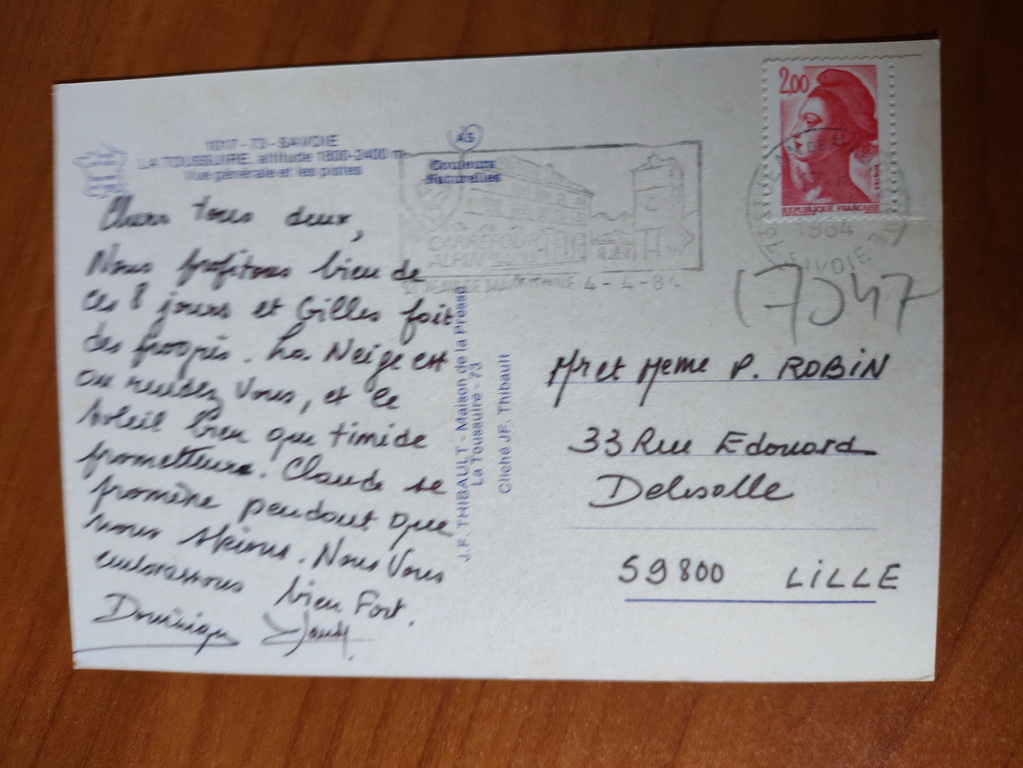 1017 - 73 - SAVOIE
LA TOUSSUIRE, altitude 1800-2400 m
Vue générale et les pistes
Couleurs
Naturelles
Chers tous deux,
Nous profitons bien de
ces 8 jours et Gilles fait
des progrès. La Neige est
au rendez Vous, et le
soleil bien que timide
prometteur. Claude se
promène pendant que
nous skions. Nous Vous
embrassons bien Fort.
Dominique
J.F. THIBAULT - Maison de la Presse
La Toussuire - 73
Cliché JF. Thibault
CARREFOUR
4 - 4 - 84
2,00
REPUBLIQUE FRANÇAISE
1984
SAVOIE
(7) 47
Mr et Meme P. ROBIN
33 Rue Edouard
Delesalle
59800 LILLE